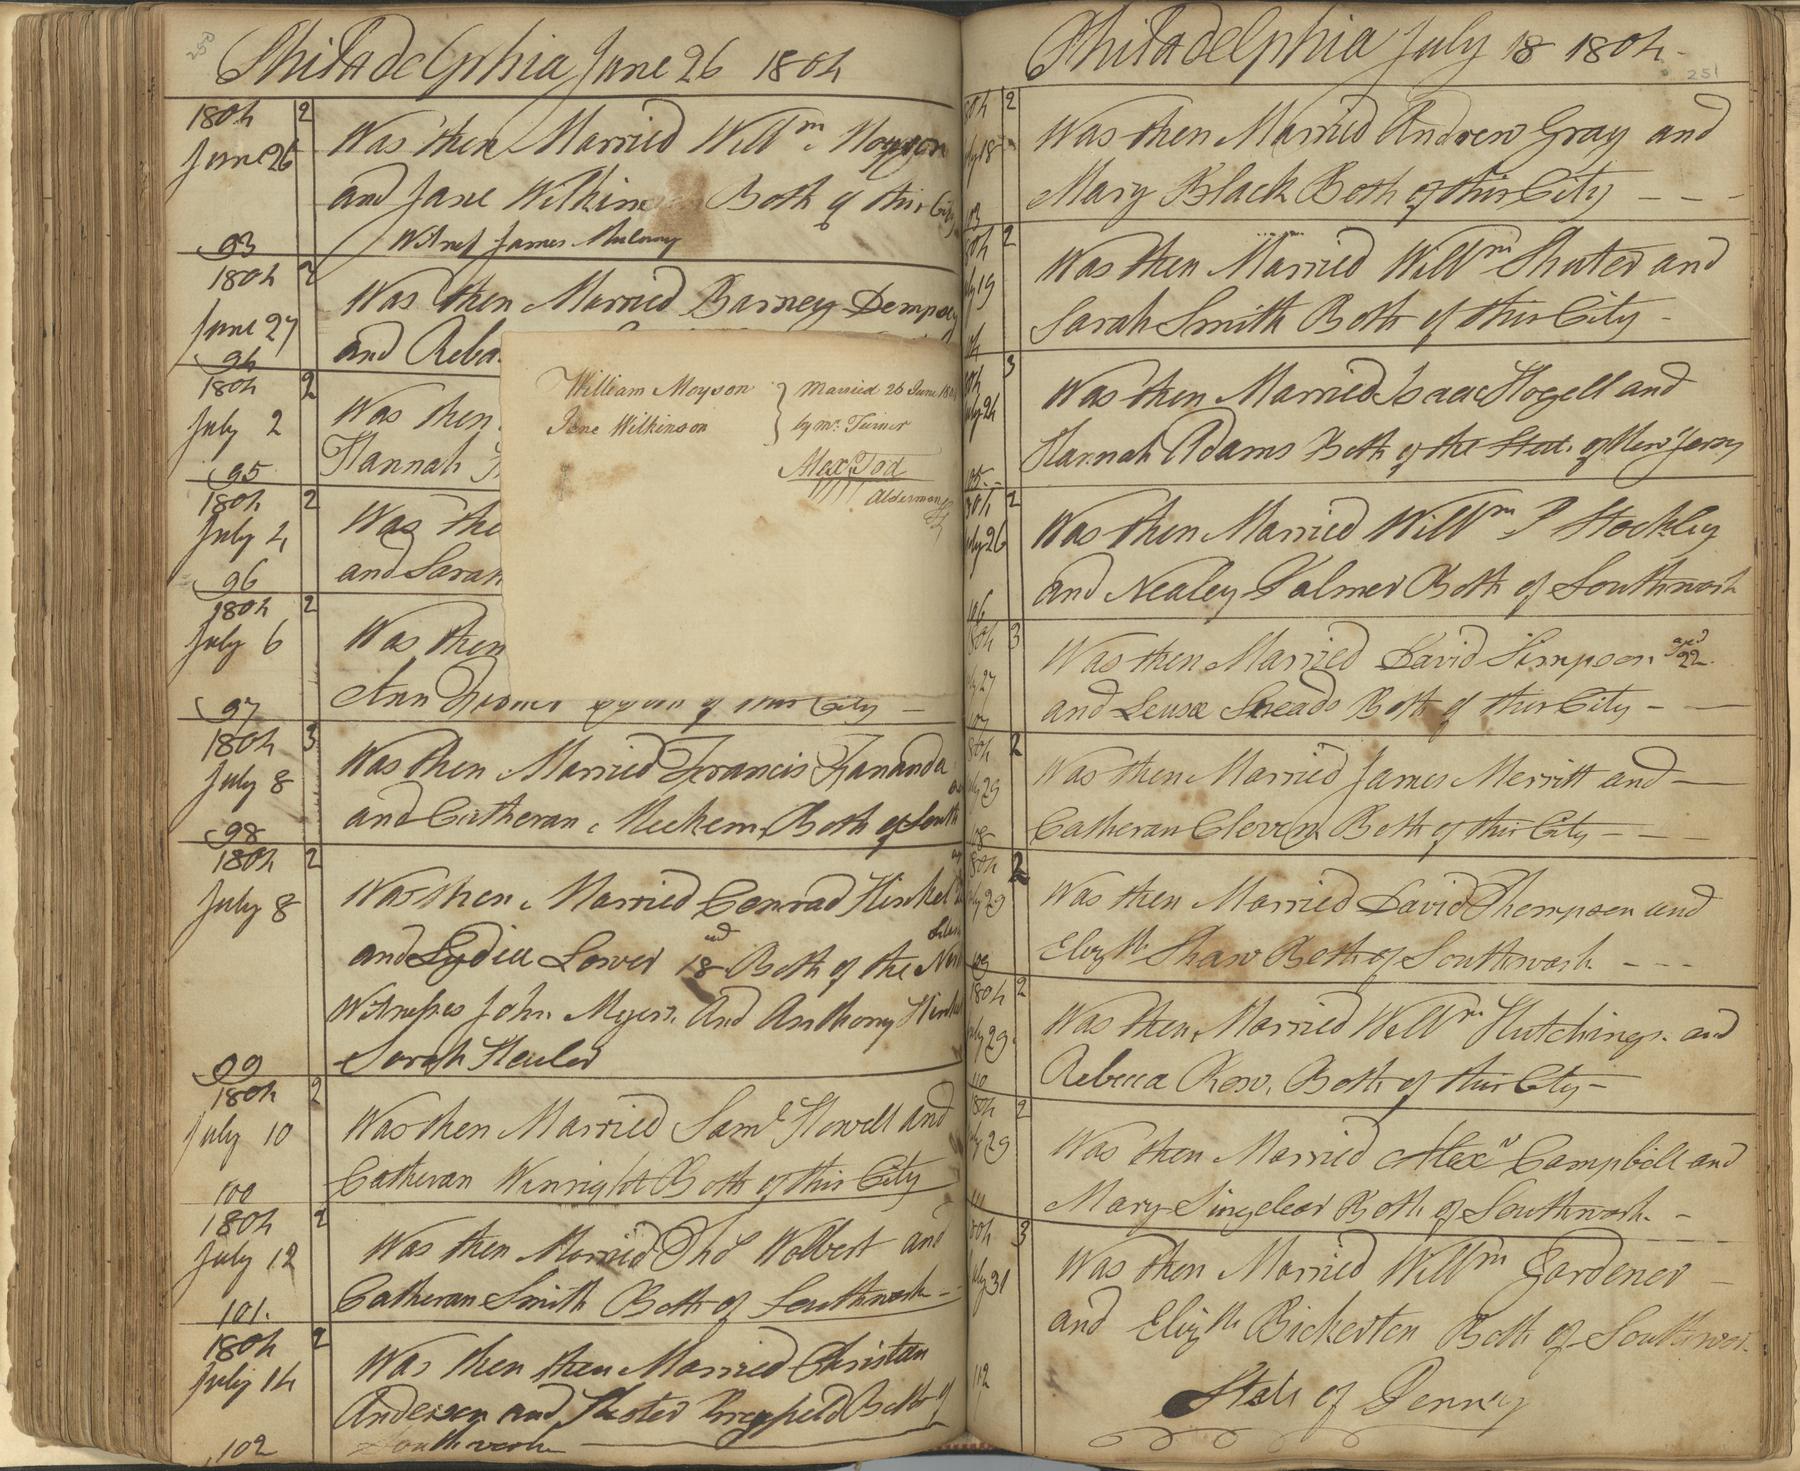 250
Philadelphia June 26 1804
1804 2
June 26 Was then Married Willm Moyson
and Jane Wilkinson Both of this City
93 Witness James Mulony
1804 2
June 27 Was then Married Barney Dempsey
94 and Reba
1804 2
July 2 Was then
95 Hannah
1804 2
July 4 Was the
96 and Sarah
1804 2
July 6 Was then
97 Ann of this City
1804 3
July 8 Was then Married Francis Fananda
98 and Catheran Meckem Both of South
1804 2
July 8 Was then Married Conrad Hinkel
and Lydia Lower 18 Both of the
Witnesses John Myers And Anthony Hinkel
99 Sarah
1804 2
July 10 Was then Married Saml Howell and
100 Catheran Winright Both of this City
1804 2
July 12 Was then Married Thos Wolbert and
101. Catheran Smith Both of Southwark
1804 2
July 14 Was then then Married Christian
Andersen and Hester Both of
102 Southwark
William Moyson } Married 26 June 1804
Jane Wilkinson } by Mr. Turner
Alex. Tod
Alderman
251
Philadelphia July 18 1804
2 Was then Married Andrew Gray and
Mary Black Both of this City
2 Was then Married Willm Shuter and
Sarah Smith Both of this City
3 Was then Married Isaac Hogell and
Hannah Adams Both of the State of New Jersey
2 Was then Married Willm P Stockley
and Nealey Palmer Both of Southwark
3 Was then Married David Simpson aged 22
and Sneads Both of this City
2 Was then Married James Merritt and
Catheran Cleven Both of this City
2 Was then Married David Thompson and
109 Elizth Shaw Both of Southwark
1804 2
Was then Married Willm Hutchings and
110 Rebecca Row, Both of this City
1804 2
Was then Married Alexr Campbell and
111 Mary Singelear Both of Southwark
1804 3
July 31 Was then Married Willm Gardener
and Elizth Bickerten Both of Southwark
112 State of Penny